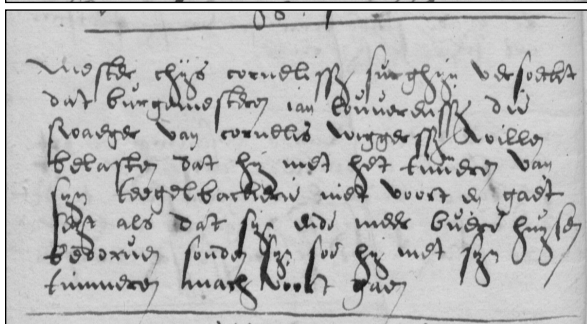 Mester thijs cornelissz surghijn versoeckt
dat burgemesteren ian louwerenssz die
swaeger van cornelis wiggerssz willen
belasten dat hij met het timeren van
sijn teegelbackerie niet voort en gaet
alst als dat sijn meer buere huijsen
bedoruen souden sijn soe hij met sijn
timmeren mach voort gaen